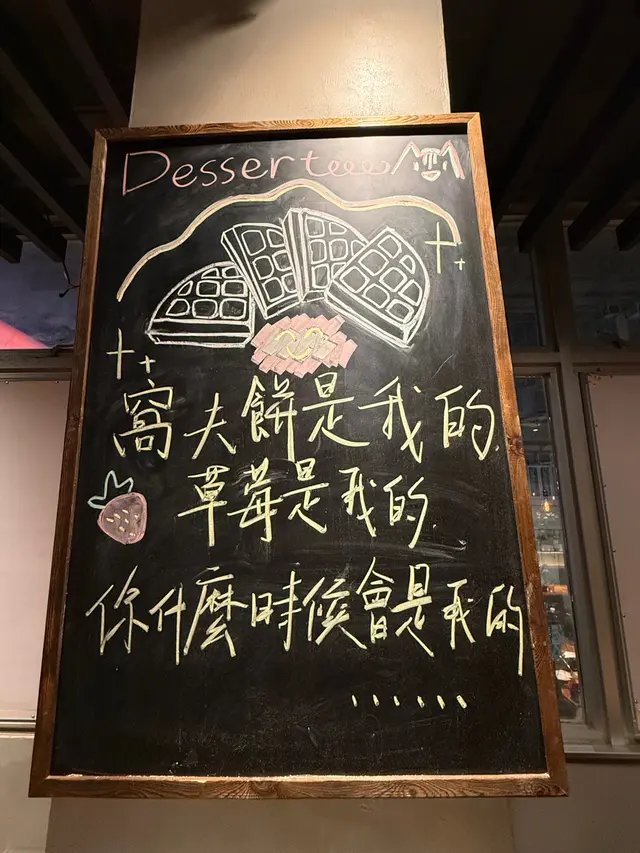 Dessert
窩夫餅是我的.
草莓是我的.
你什麼時候會是我的
......